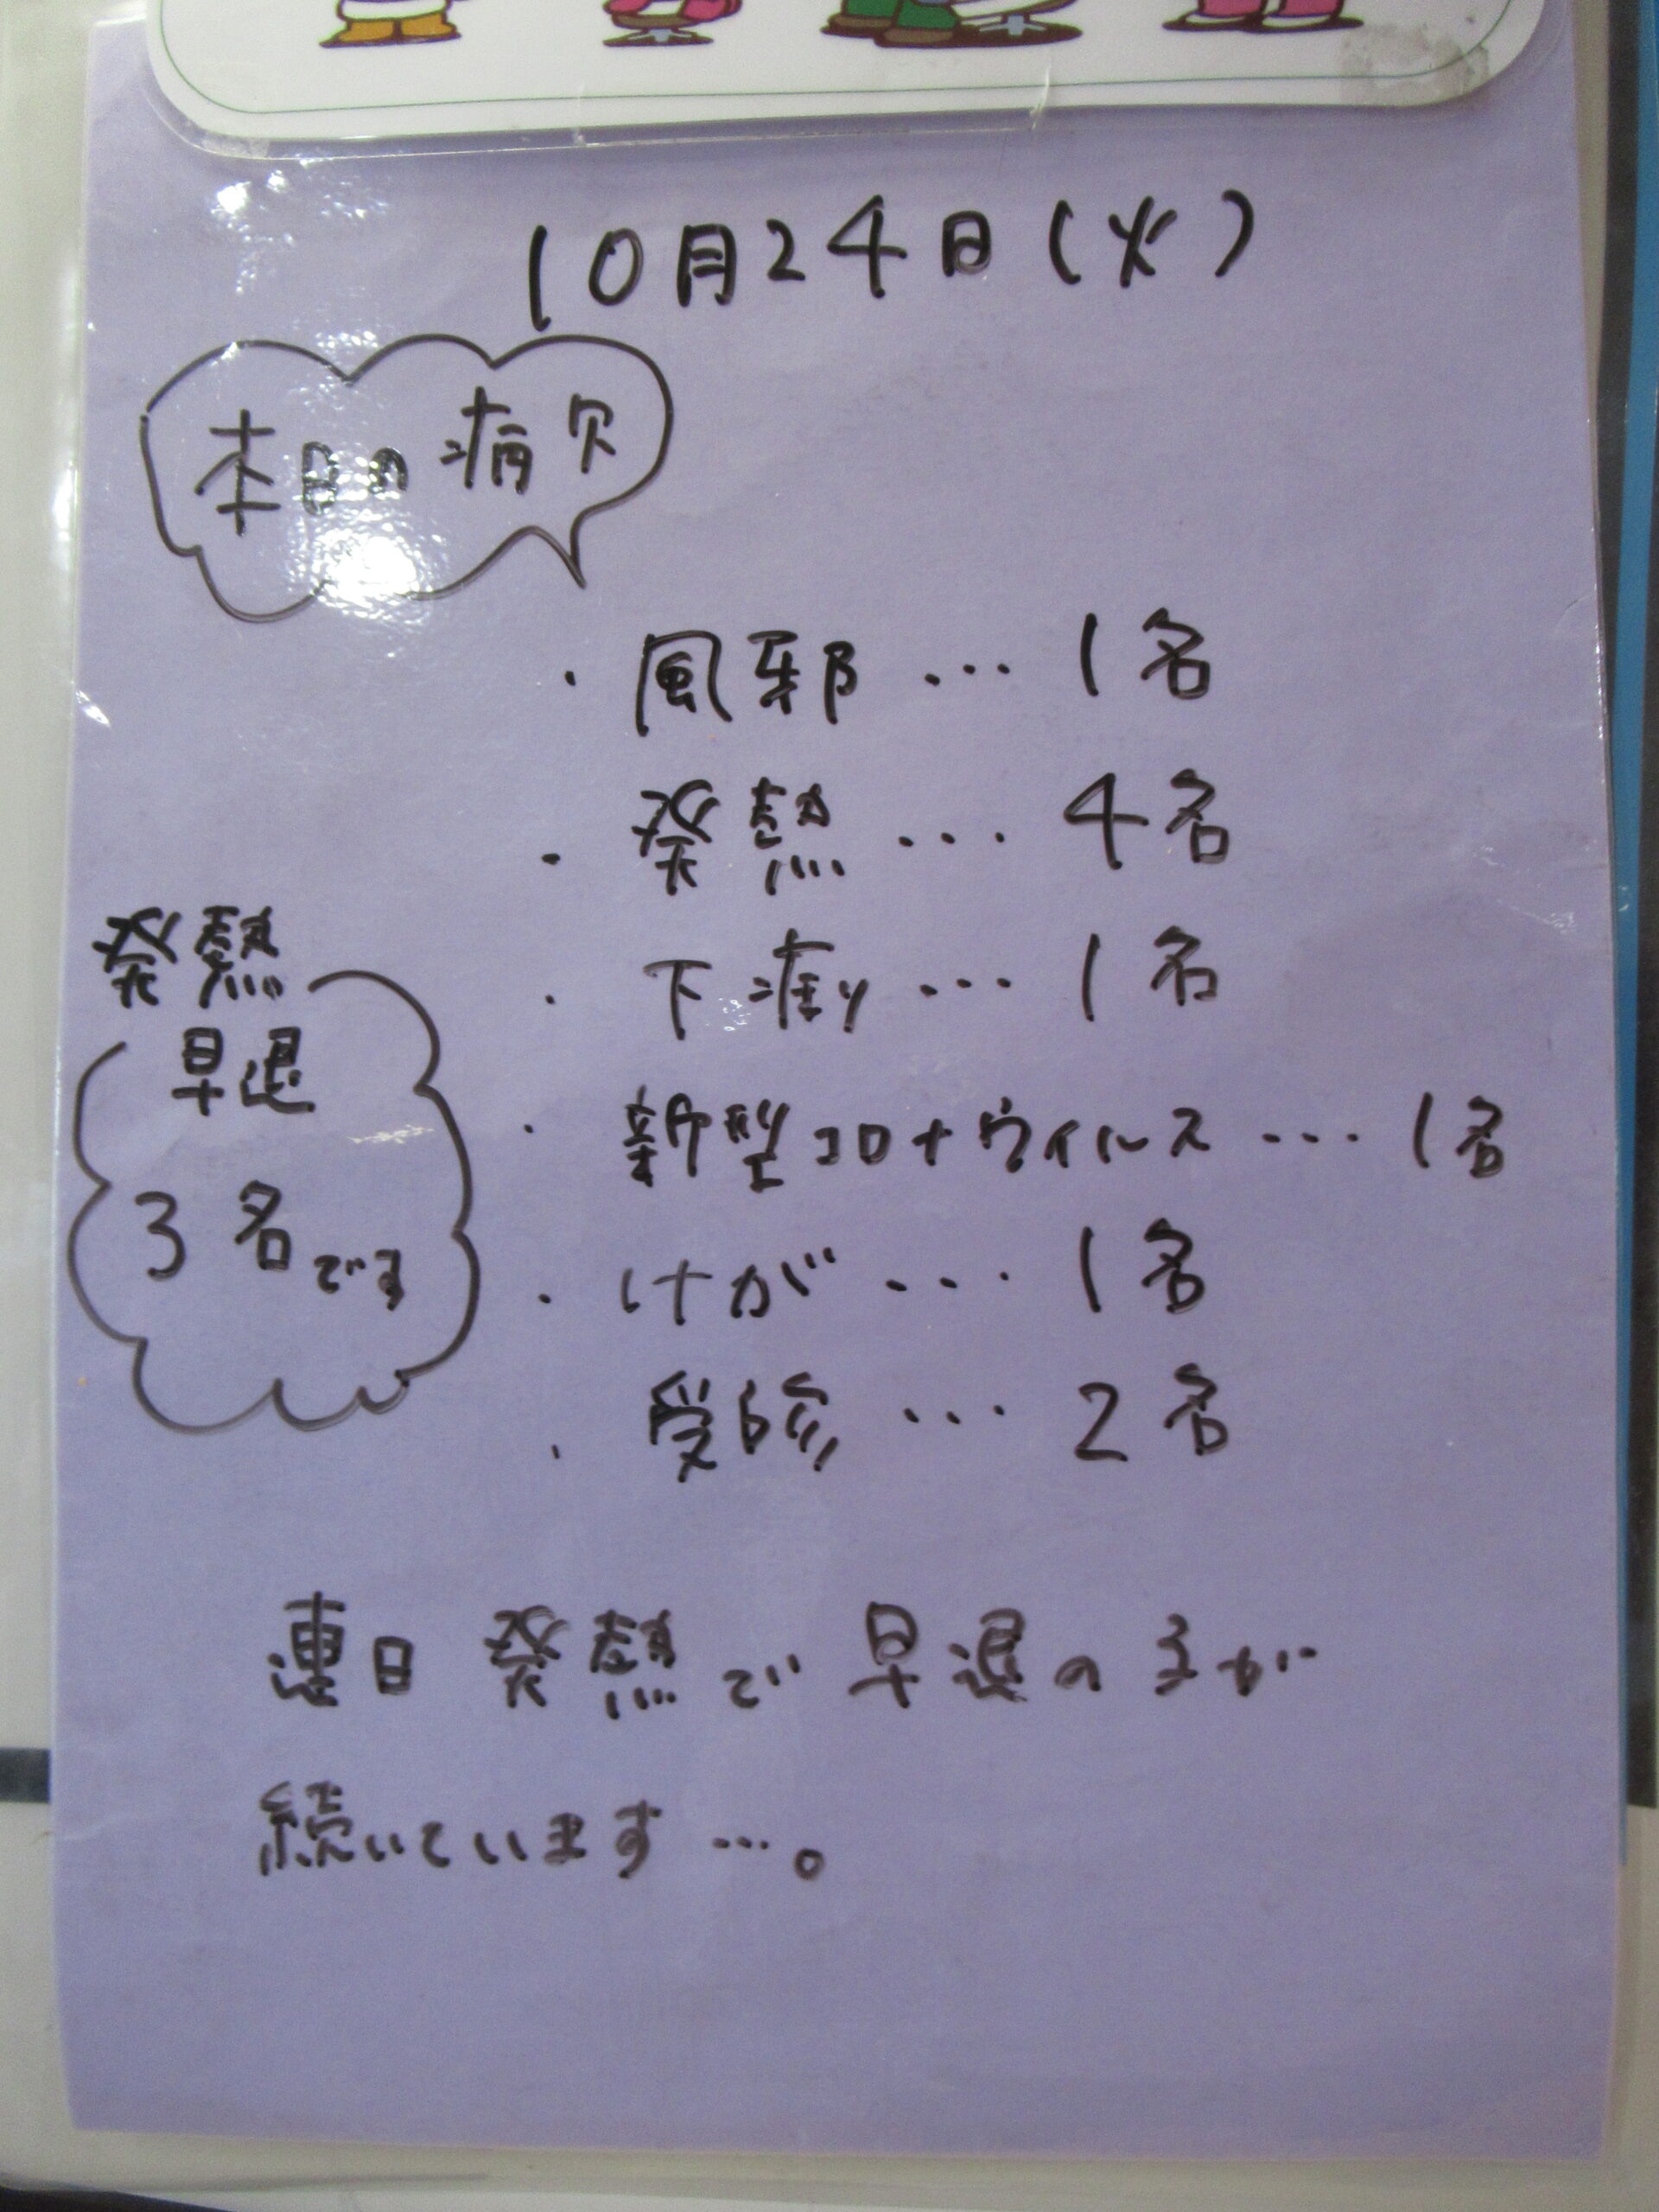 10月24日(火)
本日の病欠
・風邪…1名
・発熱…4名
・下痢…1名
・新型コロナウィルス…1名
・けが…1名
・受診…2名
発熱
早退
3名です
連日発熱で早退の子が
続いています…。